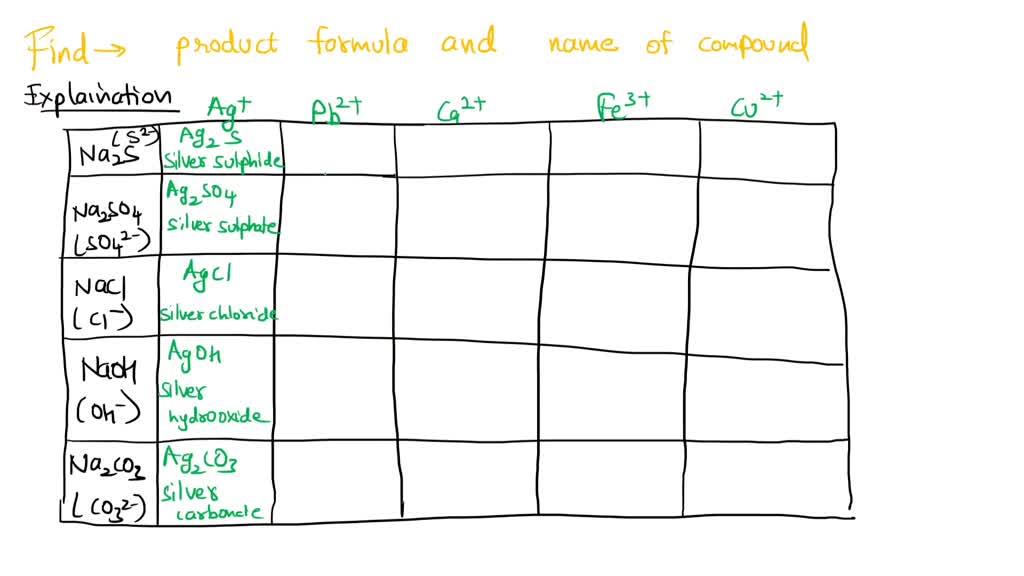 Find → product formula and name of compound
Explaination
Ag⁺ Pb²⁺ Ca²⁺ Fe³⁺ Cu²⁺
Na₂S (S²⁻) Ag₂S
silver sulphide
Na₂SO₄ Ag₂SO₄
(SO₄²⁻) silver sulphate
NaCl AgCl
(Cl⁻) silver chloride
NaOH AgOH
(OH⁻) silver
hydrooxide
Na₂CO₃ Ag₂CO₃
(CO₃²⁻) silver
carbonate